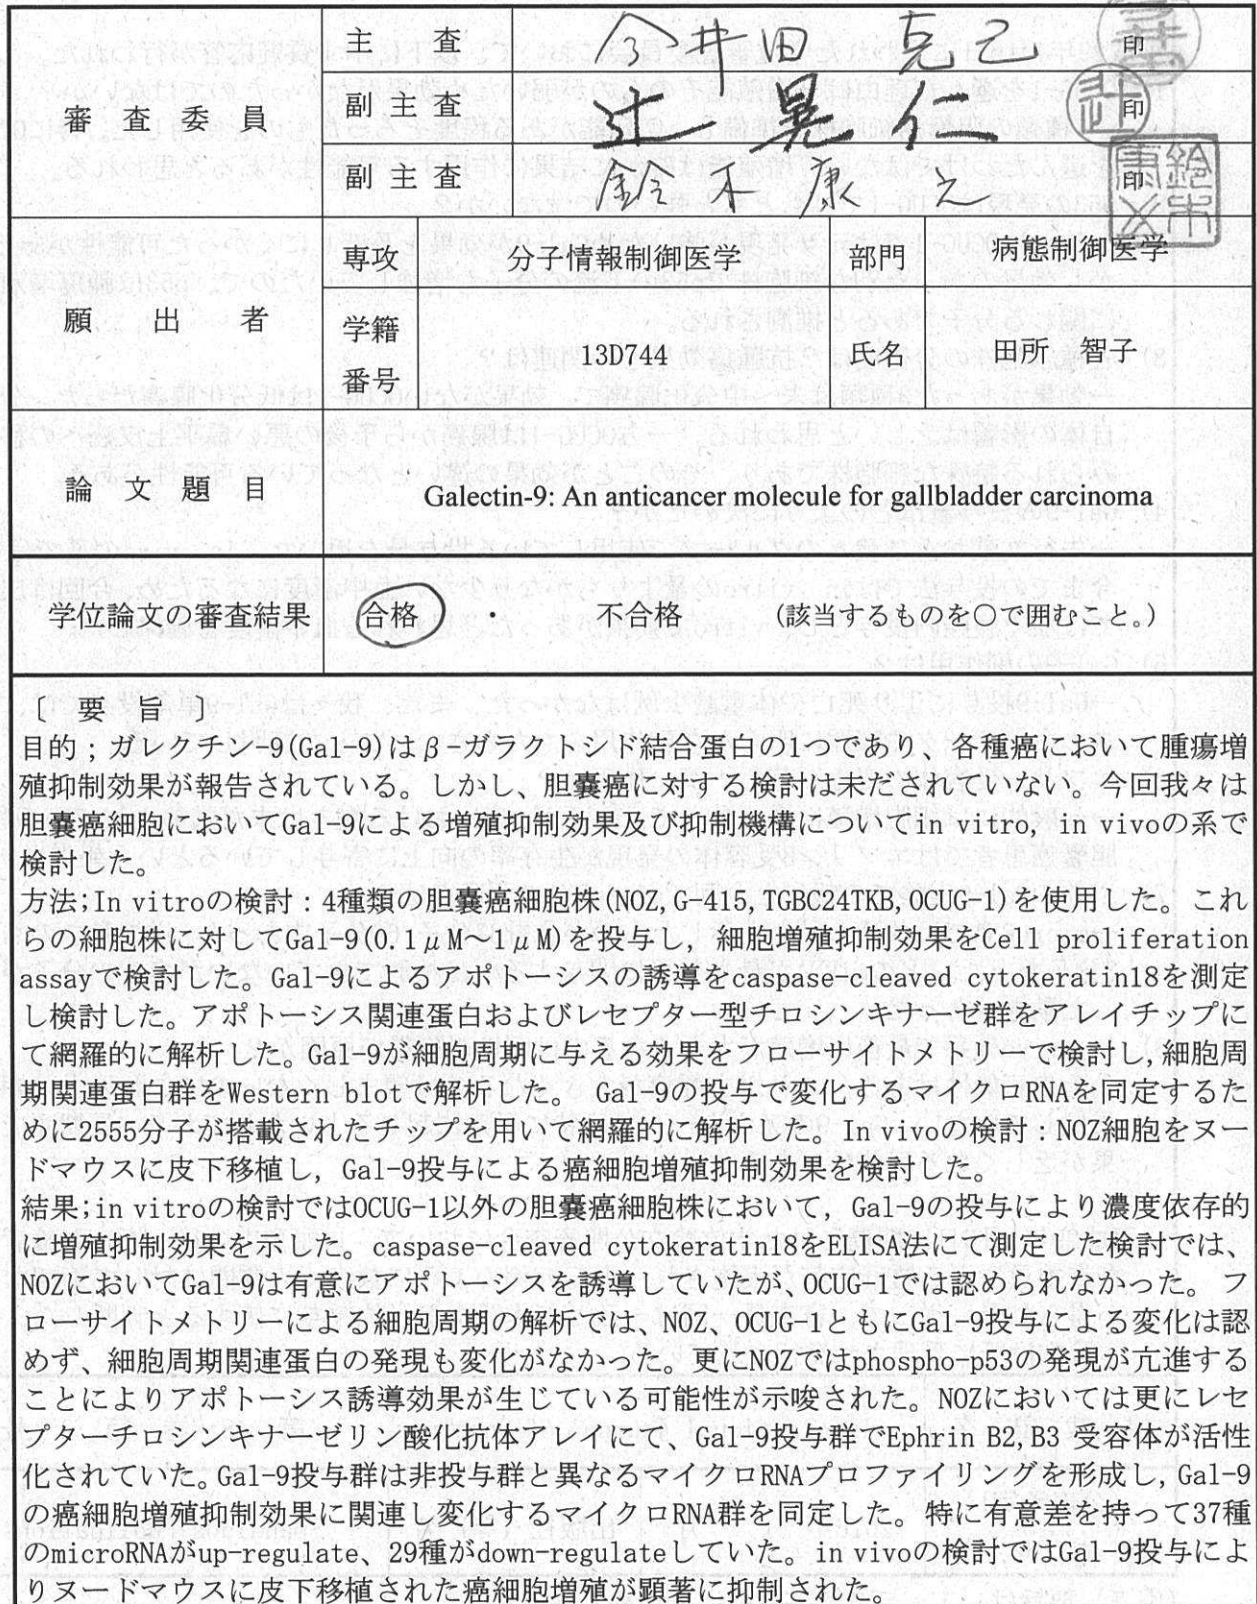 主 査 今井田 克己 印
審 査 委 員 副 主 査 辻 晃仁 印
副 主 査 鈴木 康之 印
願 出 者 専攻 分子情報制御医学 部門 病態制御医学
学籍番号 13D744 氏名 田所 智子
論 文 題 目 Galectin-9: An anticancer molecule for gallbladder carcinoma
学位論文の審査結果 合格 ・ 不合格 (該当するものを○で囲むこと。)
〔 要 旨 〕
目的；ガレクチン-9(Gal-9)はβ-ガラクトシド結合蛋白の1つであり、各種癌において腫瘍増
殖抑制効果が報告されている。しかし、胆嚢癌に対する検討は未だされていない。今回我々は
胆嚢癌細胞においてGal-9による増殖抑制効果及び抑制機構についてin vitro, in vivoの系で
検討した。
方法;In vitroの検討：4種類の胆嚢癌細胞株(NOZ, G-415, TGBC24TKB, OCUG-1)を使用した。これ
らの細胞株に対してGal-9(0.1μM～1μM)を投与し，細胞増殖抑制効果をCell proliferation
assayで検討した。Gal-9によるアポトーシスの誘導をcaspase-cleaved cytokeratin18を測定
し検討した。アポトーシス関連蛋白およびレセプター型チロシンキナーゼ群をアレイチップに
て網羅的に解析した。Gal-9が細胞周期に与える効果をフローサイトメトリーで検討し，細胞周
期関連蛋白群をWestern blotで解析した。 Gal-9の投与で変化するマイクロRNAを同定するた
めに2555分子が搭載されたチップを用いて網羅的に解析した。In vivoの検討：NOZ細胞をヌー
ドマウスに皮下移植し，Gal-9投与による癌細胞増殖抑制効果を検討した。
結果;in vitroの検討ではOCUG-1以外の胆嚢癌細胞株において，Gal-9の投与により濃度依存的
に増殖抑制効果を示した。caspase-cleaved cytokeratin18をELISA法にて測定した検討では、
NOZにおいてGal-9は有意にアポトーシスを誘導していたが、OCUG-1では認められなかった。フ
ローサイトメトリーによる細胞周期の解析では、NOZ、OCUG-1ともにGal-9投与による変化は認
めず、細胞周期関連蛋白の発現も変化がなかった。更にNOZではphospho-p53の発現が亢進する
ことによりアポトーシス誘導効果が生じている可能性が示唆された。NOZにおいては更にレセ
プターチロシンキナーゼリン酸化抗体アレイにて、Gal-9投与群でEphrin B2, B3 受容体が活性
化されていた。Gal-9投与群は非投与群と異なるマイクロRNAプロファイリングを形成し，Gal-9
の癌細胞増殖抑制効果に関連し変化するマイクロRNA群を同定した。特に有意差を持って37種
のmicroRNAがup-regulate、29種がdown-regulateしていた。in vivoの検討ではGal-9投与によ
りヌードマウスに皮下移植された癌細胞増殖が顕著に抑制された。